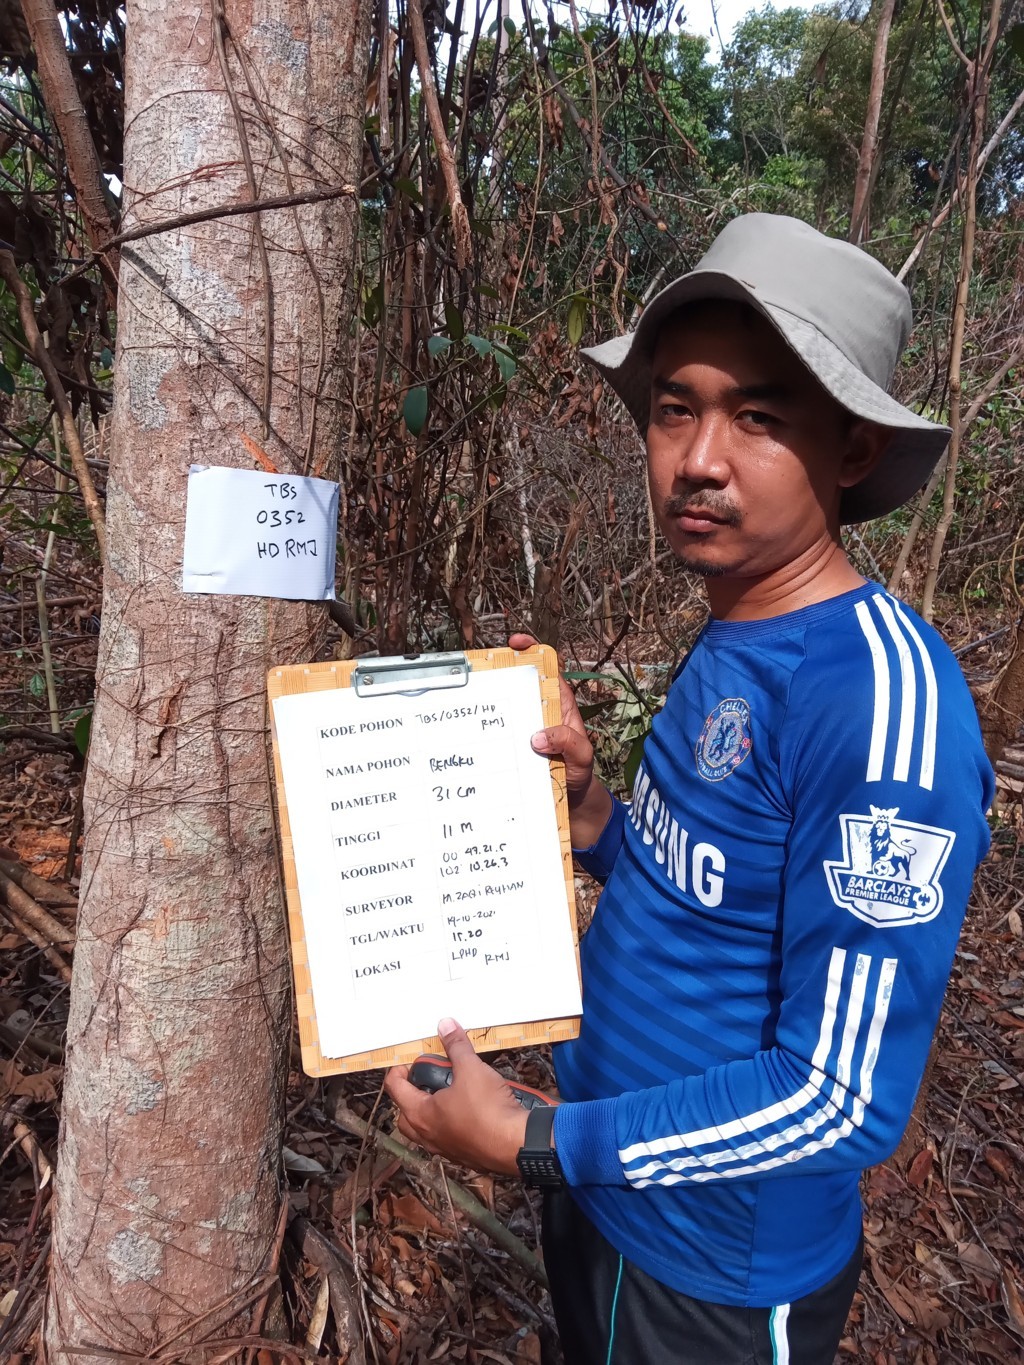 TBS
0352
HD RMJ
KODE POHON TBS/0352/HD
RMJ
NAMA POHON BENGKU
DIAMETER 31 CM
TINGGI 11 M
KOORDINAT 00 49.21.5
102 10.26.3
SURVEYOR M. ZAQI RAYHAN
TGL/WAKTU 14-10-2021
15.20
LOKASI LPHD
RMJ
CHELSEA
FOOTBALL CLUB
SUNG
BARCLAYS
PREMIER LEAGUE